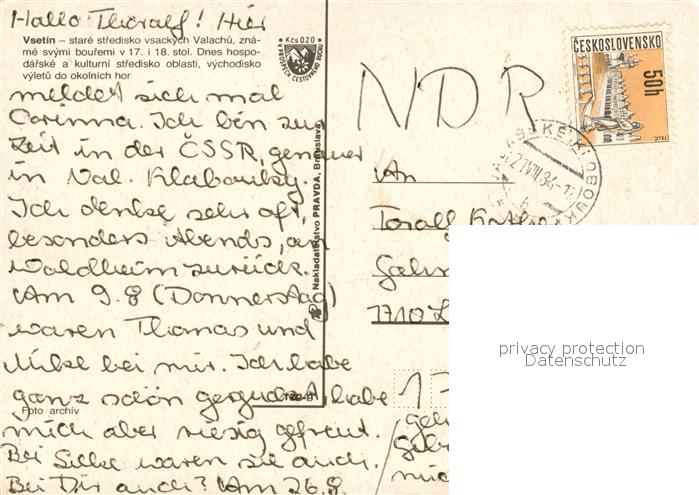 Hallo Thoralf! Hier
Vsetín – staré středisko vsackých Valachů, zná-
mé svými bouřemi v 17. i 18. stol. Dnes hospo-
dářské a kulturní středisko oblasti, východisko
výletů do okolních hor
Kčs 020
meldet sich mal
Corinna. Ich bin zur
Zeit in der ČSSR, genauer
in Val. Klabouky.
Ich denke sehr oft,
besonders Abends, an
Waldheim zurück.
Am 9.8 (Donnerstag)
waren Thomas und
Mike bei mir. Ich habe
ganz schön geguckt, habe
mich aber riesig gefreut.
Bei Silke waren sie auch.
Bei Dir auch? Am 26.8.
Foto archív
Nakladatelstvo PRAVDA, Bratislava
NDR
ČESKOSLOVENSKO
50h
TELČ
An
7710
17
mich
privacy protection
Datenschutz